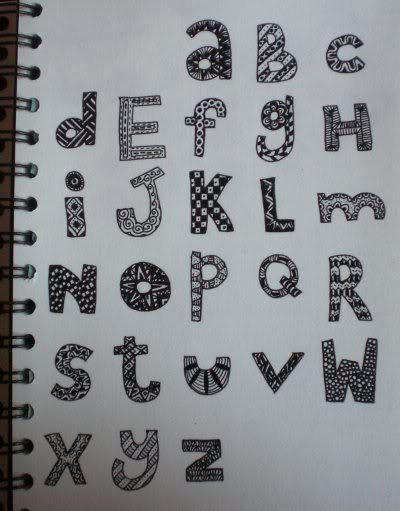 a B c
d E f g H
i J K L m
N O P Q R
S t u v W
x y z